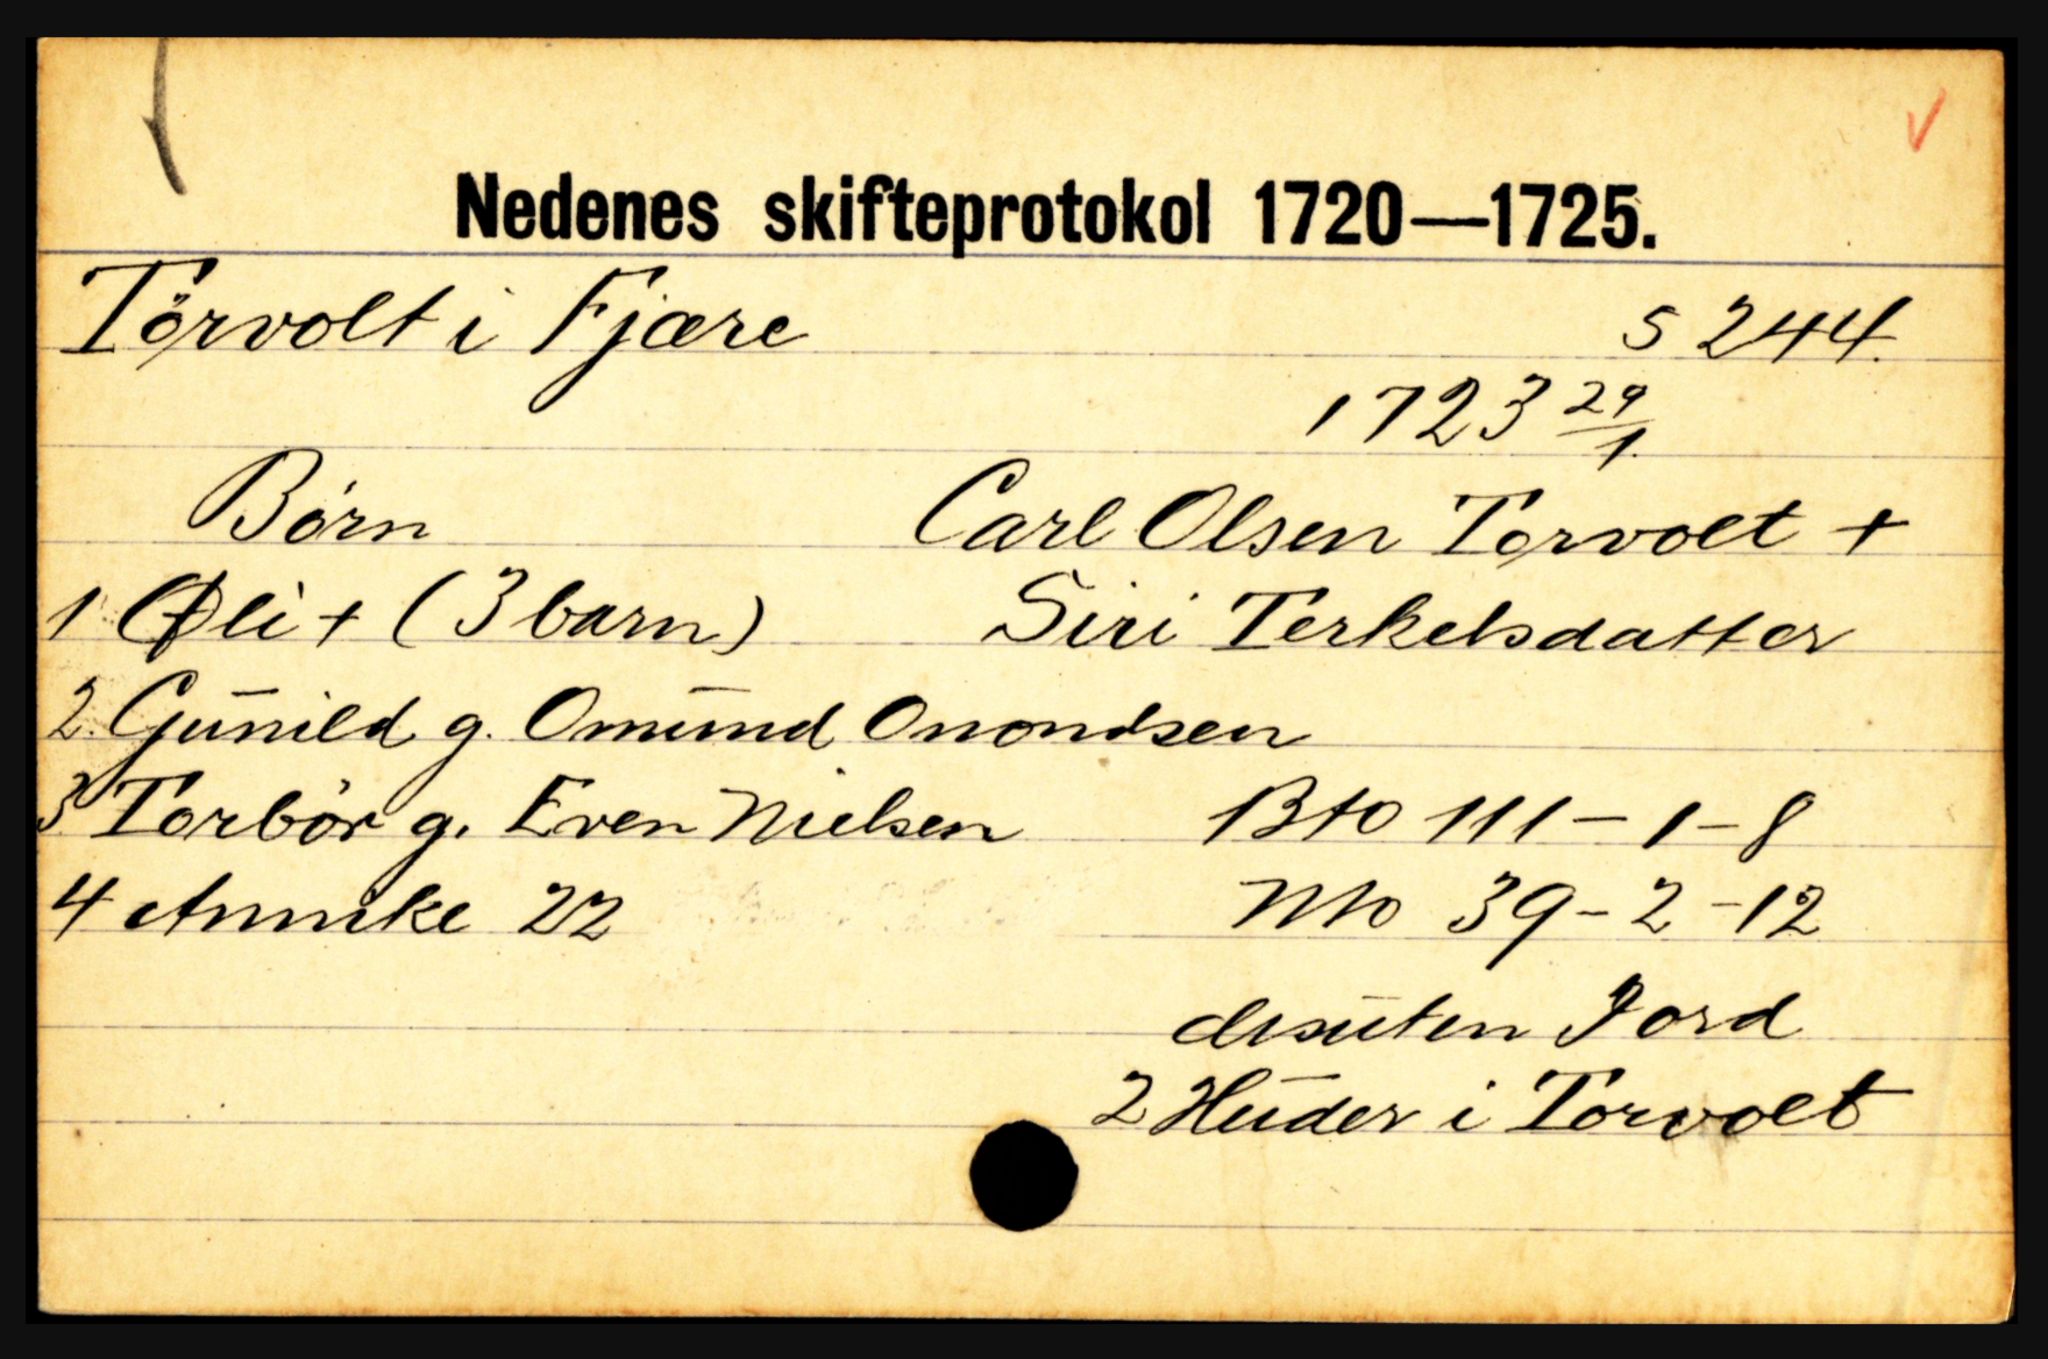 Nedenes skifteprotokol 1720—1725.
Törvolt i Fjære s 244.
1723 29/1.
Børn Carl Olsen Torvolt +
1 Øli + (3 barn) Siri Terkelsdatter
2. Gunild g. Omund Onondsen
3 Torbör g. Even Nielsen Bto 111-1-8
4 Annike 22 Nto 39-2-12
desuten Jord
2 Huder i Torvolt